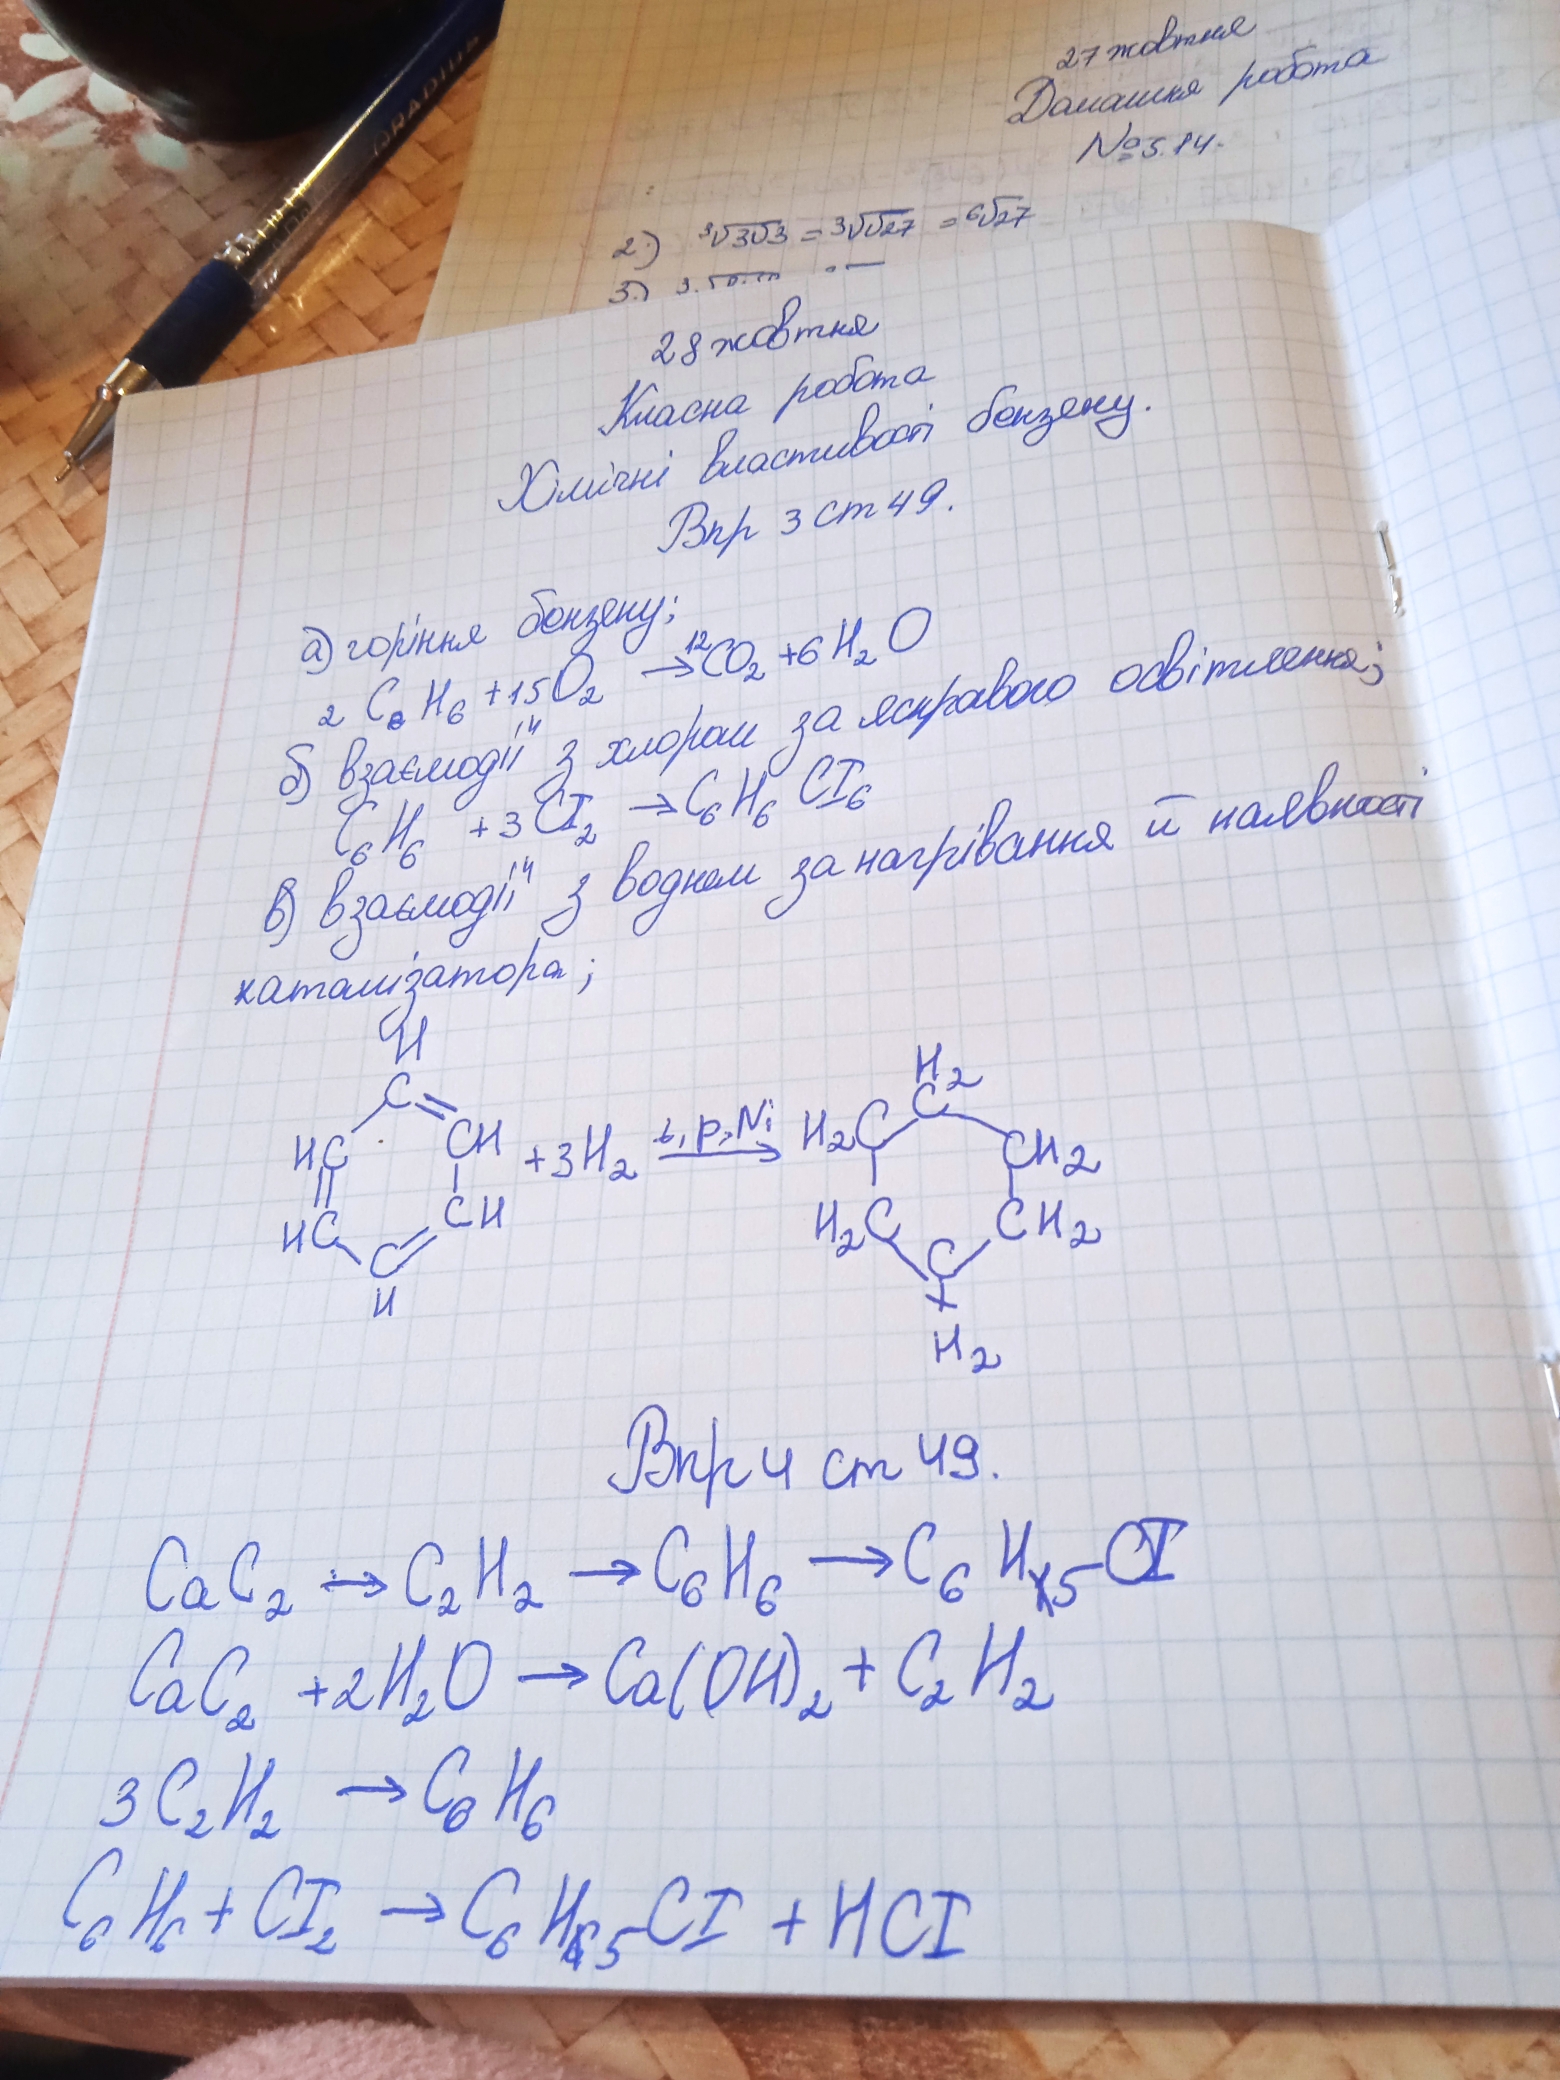 GRADIUS
27 жовтня
Домашня робота
№ 5.14.
2) ³√3√3 = ³√√27 = ⁶√27
3.)
28 жовтня
Класна робота
Хімічні властивості бензену.
Впр 3 ст 49.
а) горіння бензену;
2 C₆H₆ + 15O₂ → 12CO₂ + 6H₂O
б) взаємодії" з хлором за яскравого освітлення;
C₆H₆ + 3Cl₂ → C₆H₆Cl₆
в) взаємодії" з воднем за нагрівання й наявності
каталізатора;
H
C
HC CH
HC CH
C
H
+3H₂ t, p, Ni →
H₂
C
H₂C CH₂
H₂C CH₂
C
H₂
Впр 4 ст 49.
CaC₂ → C₂H₂ → C₆H₆ → C₆H₅–Cl
CaC₂ + 2H₂O → Ca(OH)₂ + C₂H₂
3C₂H₂ → C₆H₆
C₆H₆ + Cl₂ → C₆H₅Cl + HCl